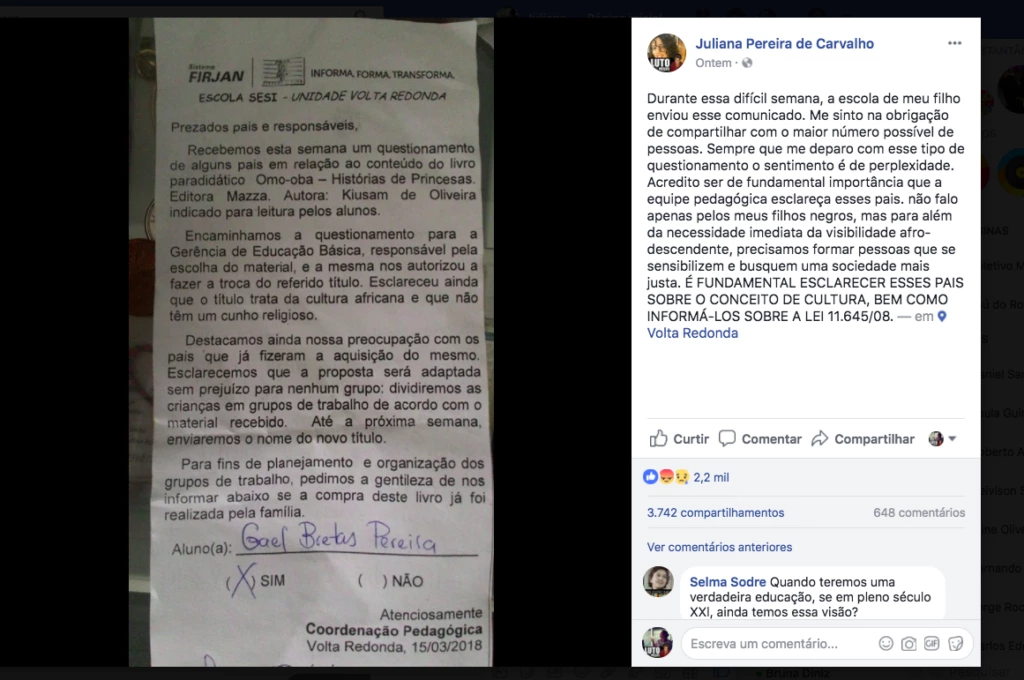 Sistema
FIRJAN
INFORMA, FORMA, TRANSFORMA.
ESCOLA SESI - UNIDADE VOLTA REDONDA
Prezados pais e responsáveis,
Recebemos esta semana um questionamento
de alguns pais em relação ao conteúdo do livro
paradidático Omo-oba – Histórias de Princesas.
Editora Mazza. Autora: Kiusam de Oliveira
indicado para leitura pelos alunos.
Encaminhamos a questionamento para a
Gerência de Educação Básica, responsável pela
escolha do material, e a mesma nos autorizou a
fazer a troca do referido título. Esclareceu ainda
que o título trata da cultura africana e que não
têm um cunho religioso.
Destacamos ainda nossa preocupação com os
pais que já fizeram a aquisição do mesmo.
Esclarecemos que a proposta será adaptada
sem prejuízo para nenhum grupo: dividiremos as
crianças em grupos de trabalho de acordo com o
material recebido. Até a próxima semana,
enviaremos o nome do novo título.
Para fins de planejamento e organização dos
grupos de trabalho, pedimos a gentileza de nos
informar abaixo se a compra deste livro já foi
realizada pela família.
Aluno(a): Gael Bretas Pereira
(X) SIM ( ) NÃO
Atenciosamente
Coordenação Pedagógica
Volta Redonda, 15/03/2018
Juliana Pereira de Carvalho
Ontem ·
LUTO
Durante essa difícil semana, a escola de meu filho
enviou esse comunicado. Me sinto na obrigação
de compartilhar com o maior número possível de
pessoas. Sempre que me deparo com esse tipo de
questionamento o sentimento é de perplexidade.
Acredito ser de fundamental importância que a
equipe pedagógica esclareça esses pais. não falo
apenas pelos meus filhos negros, mas para além
da necessidade imediata da visibilidade afro-
descendente, precisamos formar pessoas que se
sensibilizem e busquem uma sociedade mais
justa. É FUNDAMENTAL ESCLARECER ESSES PAIS
SOBRE O CONCEITO DE CULTURA, BEM COMO
INFORMÁ-LOS SOBRE A LEI 11.645/08. — em
Volta Redonda
Curtir Comentar Compartilhar
2,2 mil
3.742 compartilhamentos 648 comentários
Ver comentários anteriores
Selma Sodre Quando teremos uma
verdadeira educação, se em pleno século
XXI, ainda temos essa visão?
LUTO
Escreva um comentário...
GIF